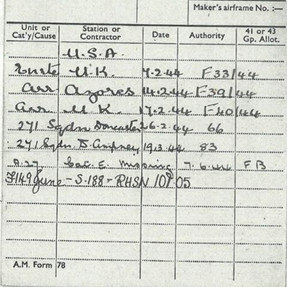 Maker's airframe No.
Unit or Cat'y/Cause Station or Contractor Date Authority 41 or 43 Gp. Allot.
U.S.A.
Enrte U.K. 7.2.44 F33/44
Arr Azores 14.2.44 F39/44
Arr U K 17.2.44 F40/44
271 Sqdn Doncaster 26.2.44 66
271 Sqdn D. Ampney 19.3.44 83
Cat. E. Missing 7.6.44 F B
£149 June - S-188 - RHSN 105
A.M. Form 78